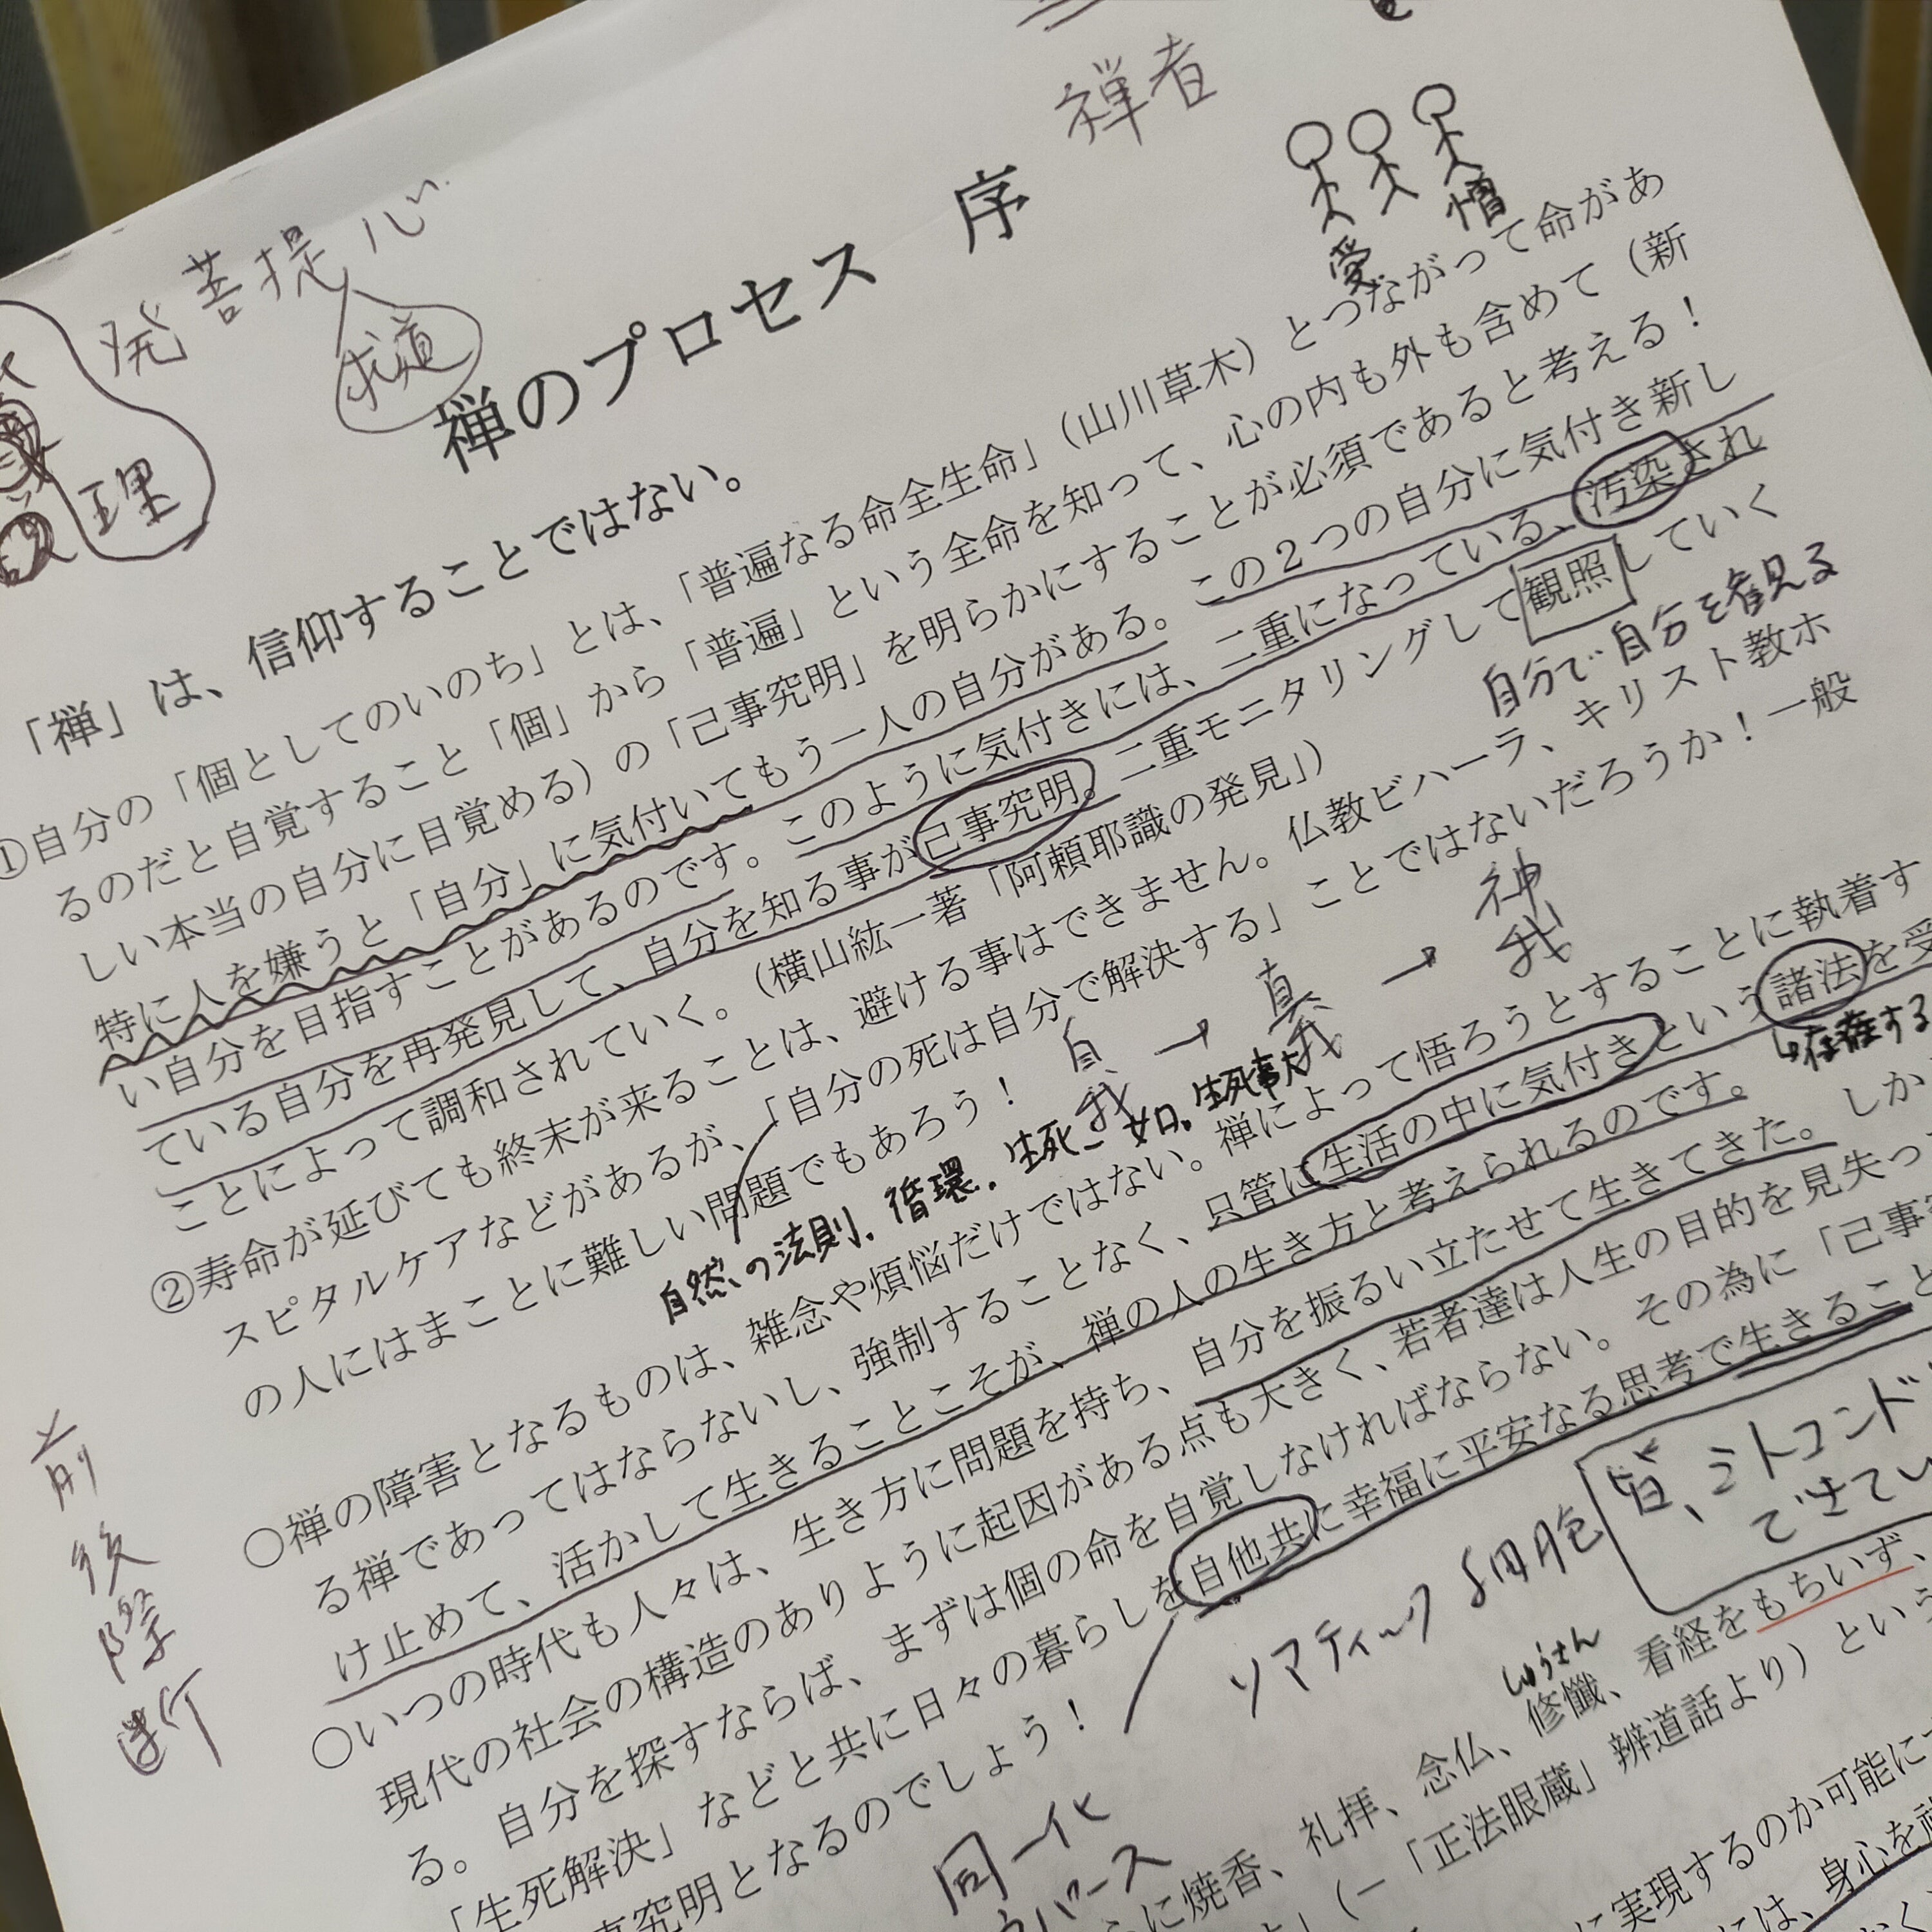 禅者
発菩提心
求道
理
愛
憎
禅のプロセス 序
「禅」は、信仰することではない。
①自分の「個としてのいのち」とは、「普遍なる命全生命」（山川草木）とつながって命があ
るのだと自覚すること「個」から「普遍」という全命を知って、心の内も外も含めて（新
しい本当の自分に目覚める）の「己事究明」を明らかにすることが必須であると考える！
特に人を嫌うと「自分」に気付いてもう一人の自分がある。この２つの自分に気付き新し
い自分を目指すことがあるのです。このように気付きには、二重になっている、汚染され
ている自分を再発見して、自分を知る事が己事究明。二重モニタリングして観照していく
自分で自分を観見る
ことによって調和されていく。（横山紘一著「阿頼耶識の発見」）
②寿命が延びても終末が来ることは、避ける事はできません。仏教ビハーラ、キリスト教ホ
スピタルケアなどがあるが、「自分の死は自分で解決する」ことではないだろうか！一般
の人にはまことに難しい問題でもあろう！
自我→真我→神我
自然の法則、循環、生死一如。生死事大
○禅の障害となるものは、雑念や煩悩だけではない。禅によって悟ろうとすることに執着す
る禅であってはならないし、強制することなく、只管に生活の中に気付きという諸法を受
存在する
け止めて、活かして生きることこそが、禅の人の生き方と考えられるのです。
○いつの時代も人々は、生き方に問題を持ち、自分を振るい立たせて生きてきた。しか
現代の社会の構造のありように起因がある点も大きく、若者達は人生の目的を見失っ
る。自分を探すならば、まずは個の命を自覚しなければならない。その為に「己事
「生死解決」などと共に日々の暮らしを自他共に幸福に平安なる思考で生きること
究明となるのでしょう！
前後際断
ソマティック 細胞
皆、ミトコンド
できてい
同一化
バース
しゅうさん
に焼香、礼拝、念仏、修懺、看経をもちいず、
」（－「正法眼蔵」辨道話より）という
に実現するのか可能に
には、身心を